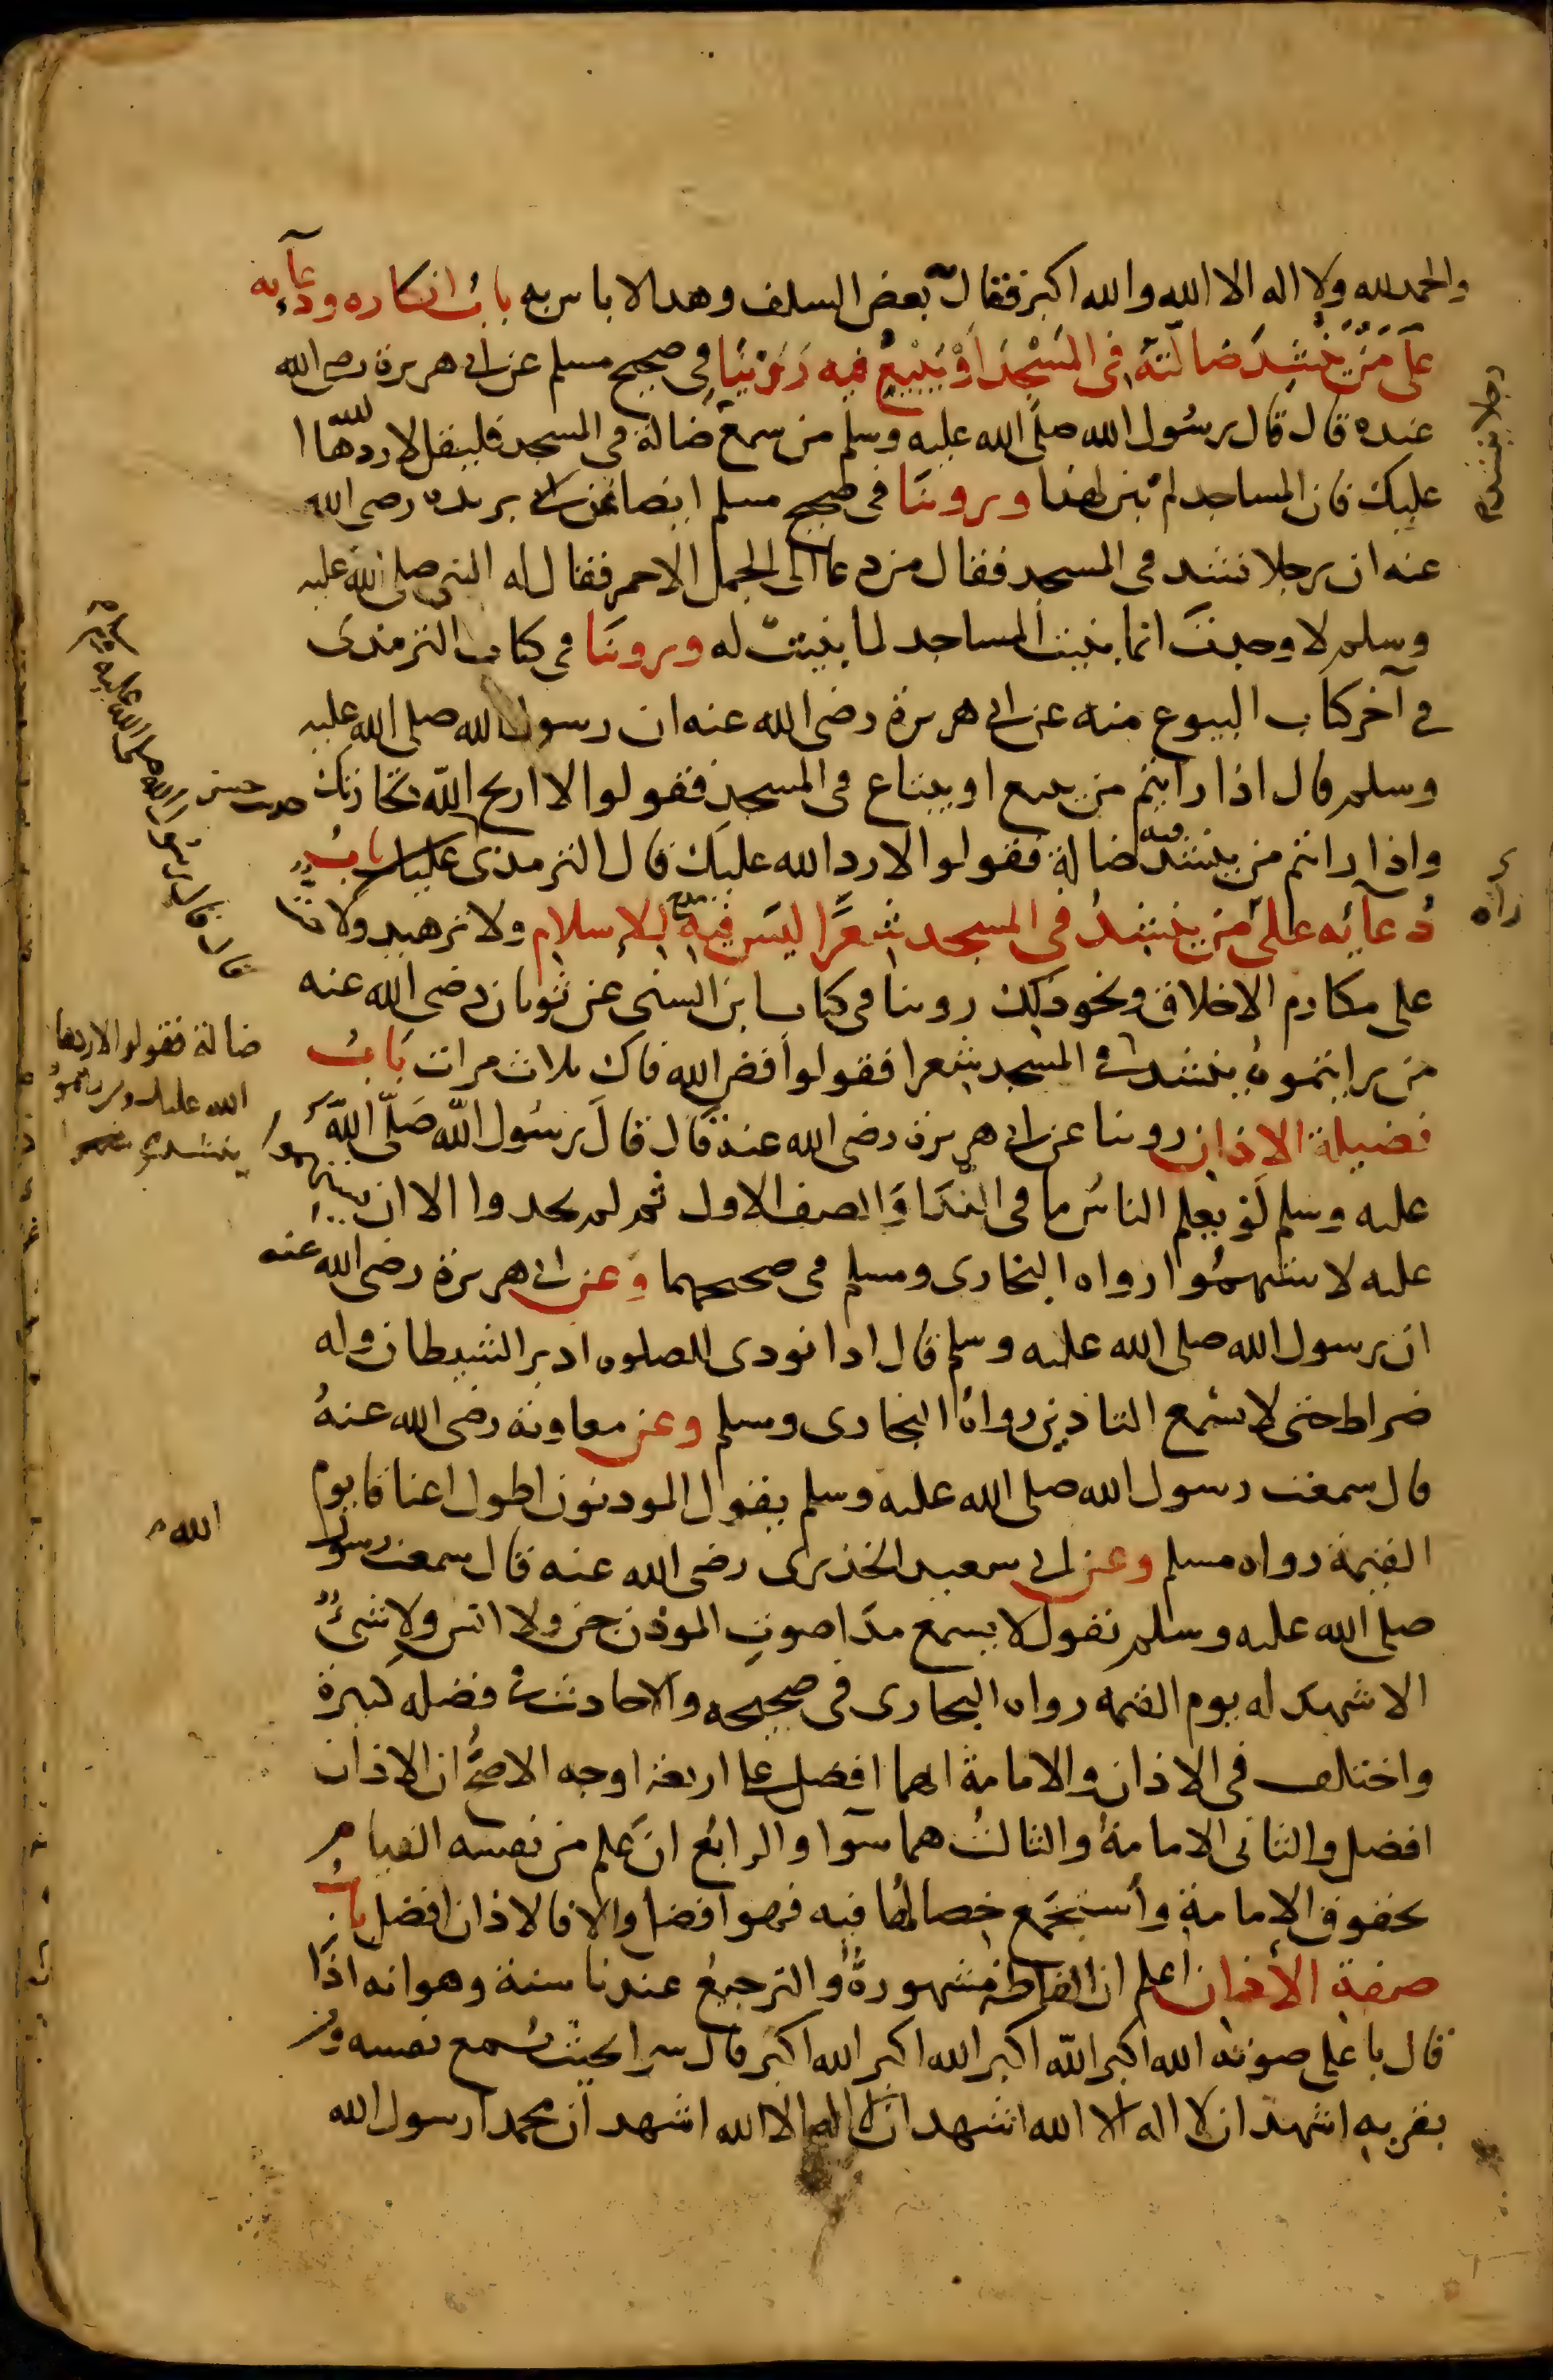 والحمد لله ولا اله الا الله والله اكبر فقال بعض السلف وهدا لا باس به باب انكاره ودعآيه
على مَنْ يَنْشِدَ ضالّتهً فى المَسْجِد اَوْ يَبْيعُ فيه رَوَيْنَا في صحيح مسلم عن ابى هريرة رضى الله
عنده قال قال رسُول الله صلى الله عليه وسلم من سمعَ ضالة فى المسجد فليقل لا ردّها الله
عليك فان المساجد لم تبن لهذا وروينَا فى صحيح مسلم ايضا عن بريده رضى الله
عنه ان رجلا نشد فى المسجد فقال من دعا الى الجمل الاحمر فقال له النبى صلى الله عليه
وسلم لا وجدتَ انما بنيت المساجد لما بنيتْ له وروينَا فى كتاب الترمذى
في آخر كتاب البيوع منه عن ابى هريرة رضى الله عنه ان رسول الله صلى الله عليه
وسلم قال اذا رايتم من يبيع او يبتاع فى المسجد فقولوا لا اربح الله تجارتك حديث حسن
واذا رايتم من ينشد فيه ضالة فقولوا لا رد الله عليك قال الترمذى باب
دُعآئه على من ينشدُ فى المسجد شعرًا ليسَ فيه مدح للاسلام ولا تزهيد ولا حث
على مكارم الاخلاق ونحو ذلك روينا فى كتاب ابن السنى عن ثوبان رضى الله عنه
من رايتموهُ ينشد فى المسجد شعرا فقولوا فض الله فاك ثلاث مرات بَابُ
فضيلة الاذان روينا عن ابى هريرة رضى الله عنه قَال قالَ رسُول الله صَلّى الله
عليه وسلم لَوْ يعلم الناسُ ما فى النّدَا وَالصف الاول ثم لم يجدوا الا ان يستهموا
عليه لاستهمُوا رواه البخارى ومسلم فى صحيحهما وعن ابى هريرة رضى الله عنه
ان رسول الله صلى الله عليه وسلم قال اذا نودى للصلوه ادبر الشيطان وله
ضراط حتى لا يسمع التاذين رواهُ البخارى ومسلم وعن معاوية رضى الله عنهُ
قال سمعت رسول الله صلى الله عليه وسلم يقول الموذنون اطول اعناقا يوم
القيمة رواه مسلم وعن ابى سعيد الخذرى رضى الله عنه قال سمعت رسول
صلى الله عليه وسلم يقول لا يسمع مدَا صوتِ الموذن جن ولا انس ولا شىءٌ
الا شهد له يوم القيمه رواه البخارى فى صحيحه والاحاديث فى فضله كثيرة
واختلف فى الاذان والامامة ايهما افضل على اربعة اوجه الاصحُّ ان الاذان
افضل والثانى الامامةُ والثالث هما سوآا والرابع ان علم من نفسه القيام
بحقوق الامامة وأستجمَع خصالها فيه فهو افضل والا فالاذان افضل باب
صفة الأذان اعلم ان الفاظه مشهورةُ والترجيعُ عندنا سنة وهو انه اذَا
قال باعلى صوته الله اكبر الله اكبر الله اكبر الله اكبر قال سرا بحيث يُسمع نفسه ومن
بقربه اشهد ان لا اله الا الله اشهد ان لا اله الا الله اشهد ان محمدا رسول الله
رجلا ينشد
راه
قال قال رسول الله صلى الله عليه وسلم
ضالة فقولوا لا ردها
الله عليك ومن رايتموه
ينشد
الله